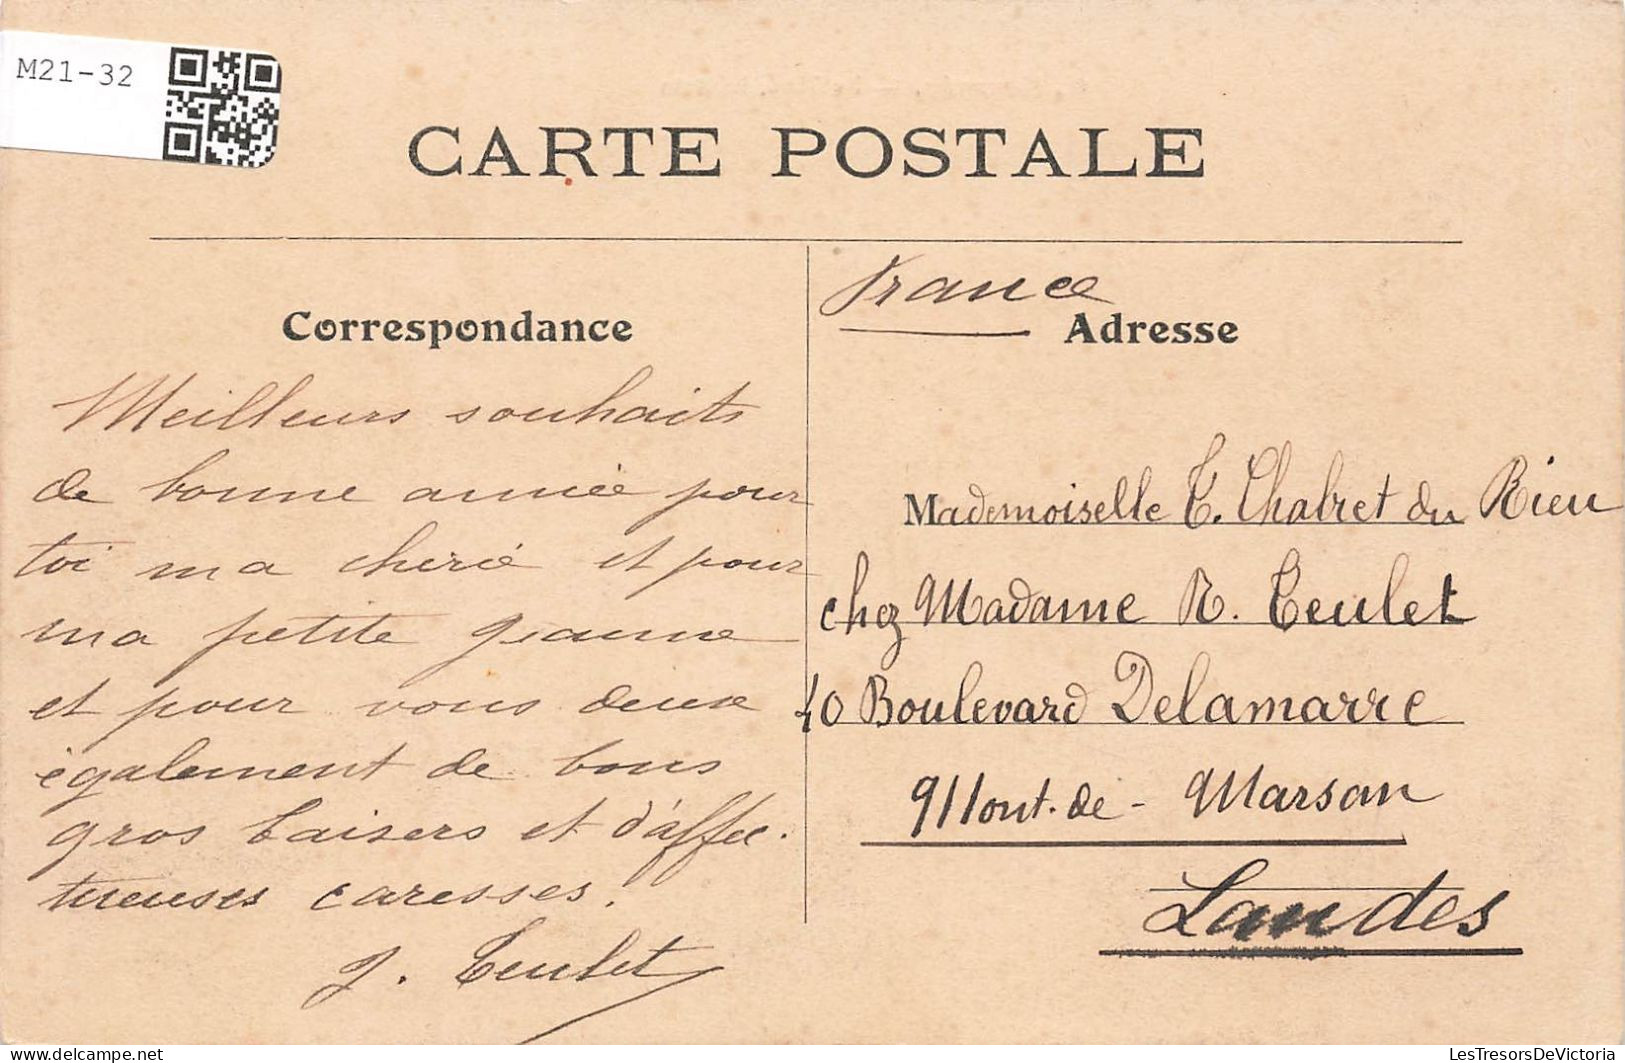 M21-32
CARTE POSTALE
France
Correspondance
Adresse
Meilleurs souhaits
de bonne année pour
toi ma cherie et pour
ma petite Jeanne
et pour vous deux
également de bons
gros baisers et d'affec-
tueuses caresses.
J. Teulet
Mademoiselle T. Chabret du Rieu
chez Madame R. Teulet
10 Boulevard Delamarre
Mont-de-Marsan
Landes
delcampe.net
LesTresorsDeVictoria